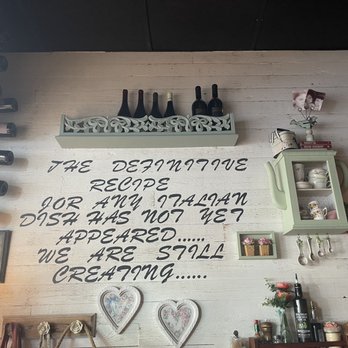 THE DEFINITIVE
RECIPE
FOR ANY ITALIAN
DISH HAS NOT YET
APPEARED......
WE ARE STILL
CREATING......